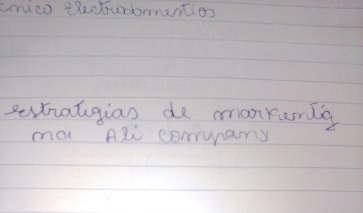 electrodomestios
estrategias de markentig
na Ali company